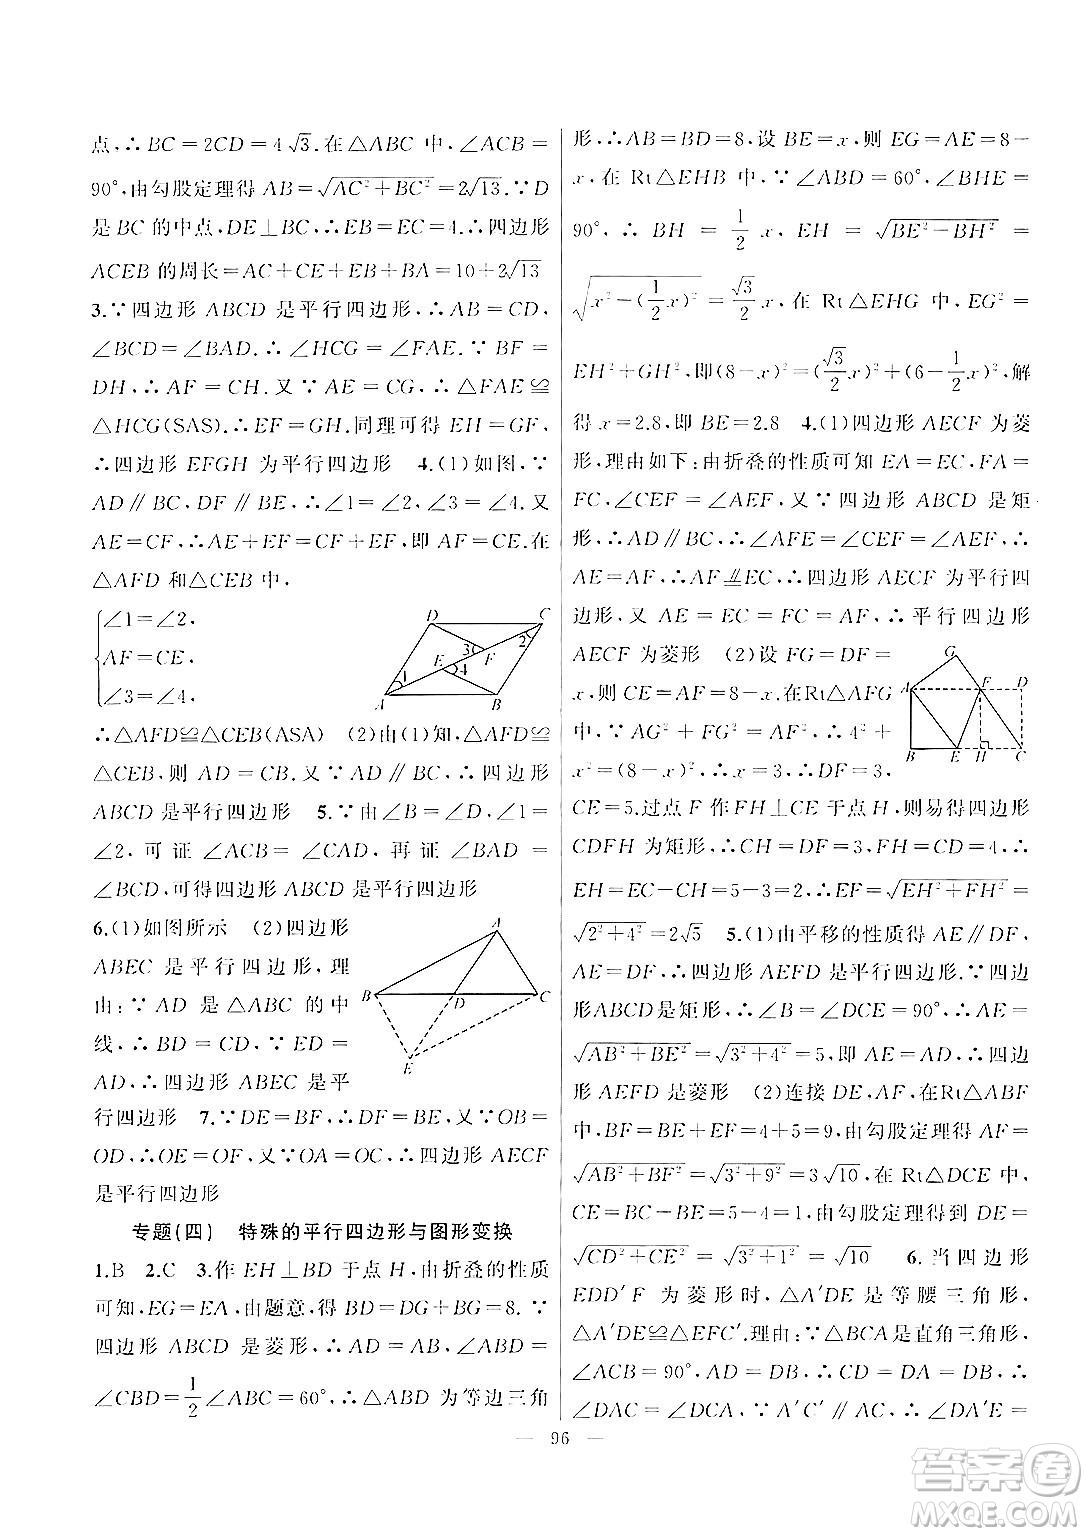 点,∴BC=2CD=4√3.在△ABC中,∠ACB=
90°,由勾股定理得AB=√(AC²+BC²)=2√13.∵D
是BC的中点,DE⊥BC,∴EB=EC=4.∴四边形
ACEB的周长=AC+CE+EB+AB=10+2√13
3.∵四边形ABCD是平行四边形,∴AB=CD,
∠BCD=∠BAD.∴∠HCG=∠FAE.∵BF=
DH,∴AF=CH.又∵AE=CG,∴△FAE≌
△HCG(SAS).∴EF=GH.同理可得EH=GF,
∴四边形EFGH为平行四边形 4.(1)如图,∵
AD∥BC,DF∥BE,∴∠1=∠2,∠3=∠4.又
AE=CF,∴AE+EF=CF+EF,即AF=CE.在
△AFD和△CEB中,
∠1=∠2,
AF=CE,
∠3=∠4,
D
C
3
2
E
F
1
4
A
B
∴△AFD≌△CEB(ASA) (2)由(1)知,△AFD≌
△CEB,则AD=CB.又∵AD∥BC,∴四边形
ABCD是平行四边形 5.∵由∠B=∠D,∠1=
∠2,可证∠ACB=∠CAD,再证∠BAD=
∠BCD,可得四边形ABCD是平行四边形
6.(1)如图所示 (2)四边形
ABEC是平行四边形,理
由:∵AD是△ABC的中
线,∴BD=CD,∵ED=
AD,∴四边形ABEC是平
行四边形 7.∵DE=BF,∴DF=BE,又∵OB=
OD,∴OE=OF,又∵OA=OC,∴四边形AECF
是平行四边形
A
B
D
C
E
专题(四) 特殊的平行四边形与图形变换
1.B 2.C 3.作EH⊥BD于点H,由折叠的性质
可知,EG=EA,由题意,得BD=DG+BG=8.∵
四边形ABCD是菱形,∴AD=AB,∠ABD=
∠CBD=1/2∠ABC=60°,∴△ABD为等边三角
形,∴AB=BD=8,设BE=x,则EG=AE=8-
x,在Rt△EHB中,∵∠ABD=60°,∠BHE=
90°,∴BH=1/2x,EH=√(BE²-BH²)=
√(x²-(1/2x)²)=√3/2x,在Rt△EHG中,EG²=
EH²+GH²,即(8-x)²=(√3/2x)²+(6-1/2x)²,解
得x=2.8,即BE=2.8 4.(1)四边形AECF为菱
形,理由如下:由折叠的性质可知EA=EC,FA=
FC,∠CEF=∠AEF,又∵四边形ABCD是矩
形,∴AD∥BC,∴∠AFE=∠CEF=∠AEF,∴
AE=AF,∴AF∥=EC,∴四边形AECF为平行四
边形,又AE=EC=FC=AF,∴平行四边形
AECF为菱形 (2)设FG=DF=
x,则CE=AF=8-x.在Rt△AFG
中,∵AG²+FG²=AF²,∴4²+
x²=(8-x)²,∴x=3,∴DF=3,
G
A
F
D
B
E
H
C
CE=5.过点F作FH⊥CE于点H,则易得四边形
CDFH为矩形,∴CH=DF=3,FH=CD=4,∴
EH=EC-CH=5-3=2,∴EF=√(EH²+FH²)=
√(2²+4²)=2√5 5.(1)由平移的性质得AE∥DF,
AE=DF,∴四边形AEFD是平行四边形,∵四边
形ABCD是矩形,∴∠B=∠DCE=90°,∴AE=
√(AB²+BE²)=√(3²+4²)=5,即AE=AD,∴四边
形AEFD是菱形 (2)连接DE,AF,在Rt△ABF
中,BF=BE+EF=4+5=9,由勾股定理得AF=
√(AB²+BF²)=√(3²+9²)=3√10.在Rt△DCE中,
CE=BC-BE=5-4=1,由勾股定理得到DE=
√(CD²+CE²)=√(3²+1²)=√10 6.当四边形
EDD′F为菱形时,△A′DE是等腰三角形,
△A′DE≌△EFC′.理由:∵△BCA是直角三角形,
∠ACB=90°,AD=DB,∴CD=DA=DB,∴
∠DAC=∠DCA,∵A′C′∥AC,∴∠DA′E=
96
答案卷
MXQE.COM